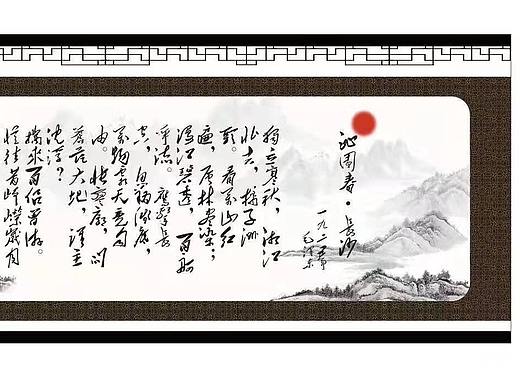 沁园春·长沙
一九二五年
毛泽东
独立寒秋,湘江
北去,橘子洲
头。看万山红
遍,层林尽染;
漫江碧透,百舸
争流。鹰击长
空,鱼翔浅底,
万物霜天竞自
由。怅寥廓,问
苍茫大地,谁主
沉浮?
携来百侣曾游。
忆往昔峥嵘岁月